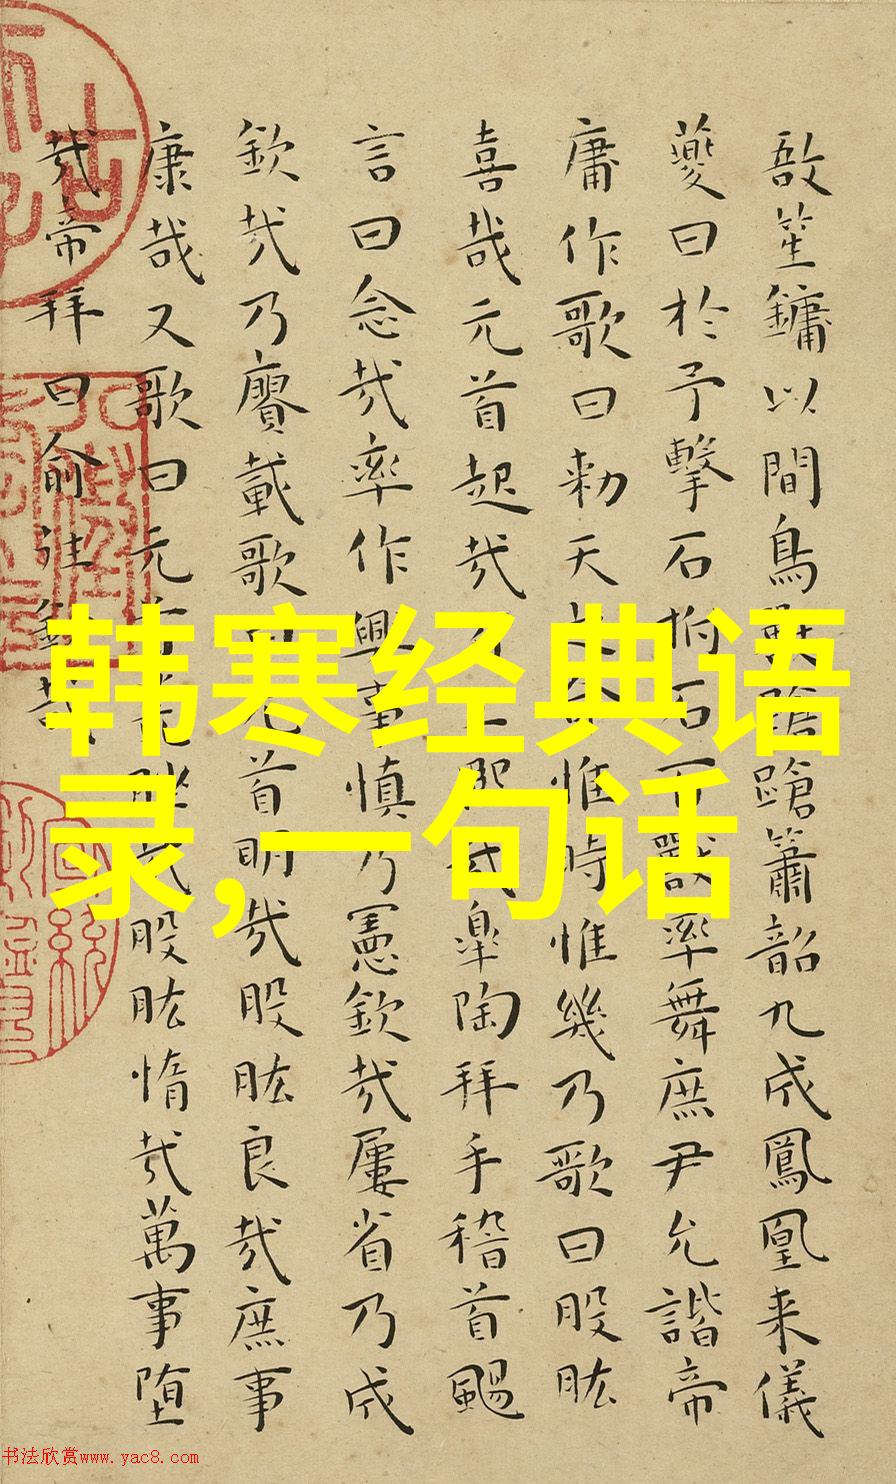 敔笙鏞以間鳥獸蹌蹌簫韶九成鳳凰来儀
夔曰於予擊石拊石百獸率舞庶尹允諧帝
庸作歌曰勅天之命惟時惟幾乃歌曰股肱
喜哉元首起哉百工熙哉皐陶拜手稽首颺
言曰念哉率作興事慎乃憲欽哉屢省乃成
欽哉乃賡載歌曰元首明哉股肱良哉庶事
康哉又歌曰元首叢脞哉股肱惰哉萬事堕
哉帝拜曰俞往欽哉
韩寒经典语
录,一句话
书法欣赏www.yac8.com